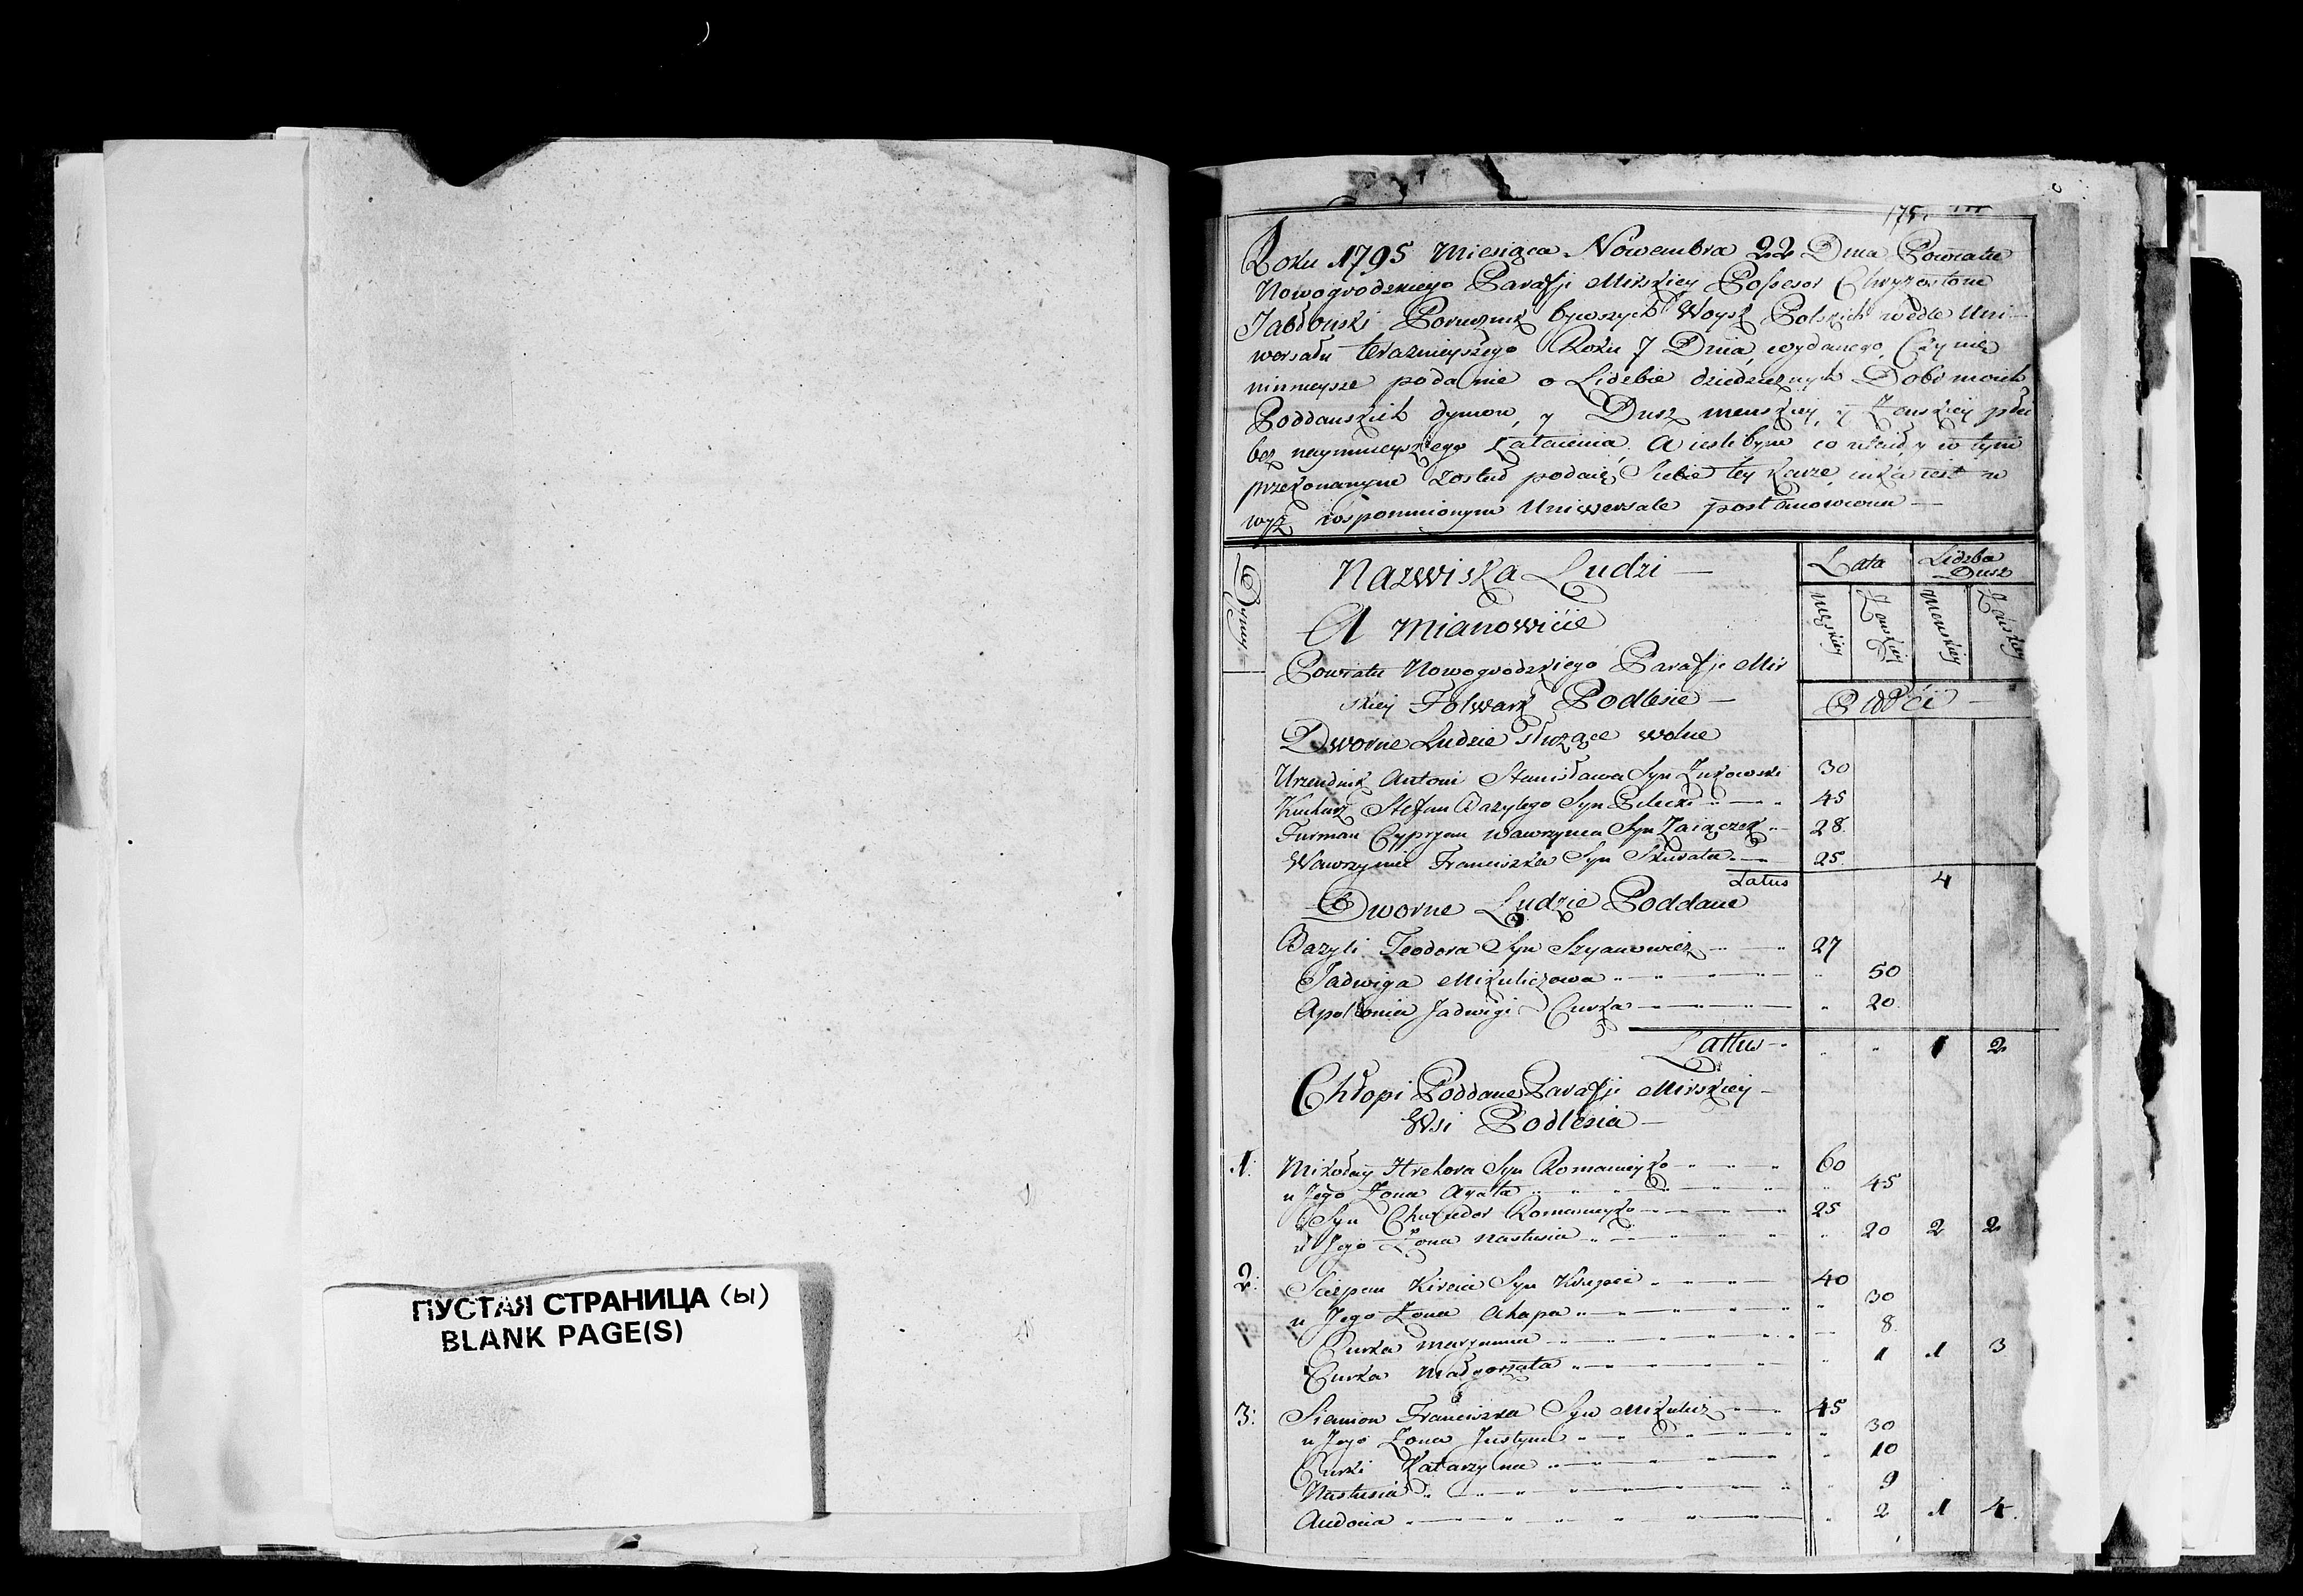 ПУСТАЯ СТРАНИЦА (Ы)
BLANK PAGE(S)
175.
Roku 1795 Miesiąca Nowembra 22 Dnia Powiatu
Nowogrodzkiego Parafji Mirskiey Possesor Chryzostom
Jabłoński Porucznik bywszych Woysk Polskich wedle Uni-
wersału teraznieyszego Roku 7 Dnia wydanego, Czynię
ninieysze podanie o Lidzbie dziedzicznych Dobr moich
Poddanskich dymow, y Dusz menskiey, y Zenskiey płci
bez naymnieyszego zataienia. A ieslibym co utaił, y w tym
przekonanym został podaię Siebie tey karze, iaka iest w
wyż wspomnionym Uniwersale postanowiona —
Dymy
Nazwiska Ludzi —
A Mianowicie
Lata
Lidzba Dusz
męskiey
Zenskiey
Menskiey
Zenskiey
Powiatu Nowogrodzkiego Parafji Mir
skiey Folwark Podlesie —
Płci —
Dworne Ludzie służące wolne
Urzendnik Antoni Stanisława Syn Żukowski 30
Kucharz Stefan Bazylego Syn 45
Furman Cypryan Wawrzynca Syn Zaiączek 28
Wawrzyniec Franciszka Syn Skurata 25
Latus 4
Dworne Ludzie Poddane
Bazyli Teodora Syn Szyanowicz 27
Jadwiga Mikuliczowa 50
Apolonia Jadwigi Curka 20
Lattus 1 2
Chłopi Poddane Parafji Mirskiey —
Wsi Podlesia —
1: Mikołay Hrehora Syn Romanieyko 60
u Jego Żona Agata 45
Syn Chwiedor Romanieyko 25
u Jego Żona Nastusia 20 2 2
2: Sciepan Kireia Syn 40
u Jego Żona Ahapa 30
Curka Maryanna 8
Curka Małgorzata 1 1 3
3: Siemion Franciszka Syn Mikulicz 45
u Jego Żona Justyna 30
Curki Katarzyna 10
Nastusia 9
Audocia 2 1 4